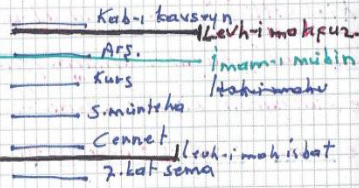 Kab-ı kavseyn
Levh-i mahfuz.
Arş.
İmam-ı mübin
Kurs
S.münteha
Cennet
levh-i mah isbat
7.kat sema